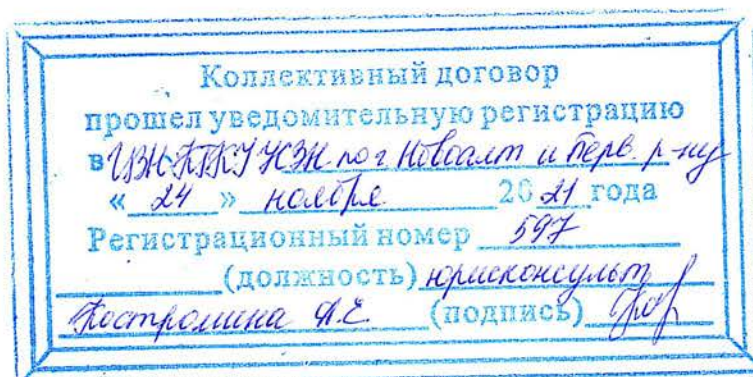 Коллективный договор
прошел уведомительную регистрацию
в ЦЗН КГКУ УСЗН по г Новоалт и Перв. р-ну
« 24 » ноября 2021 года
Регистрационный номер 597
(должность) юрисконсульт
Костромина А.Е. (подпись)